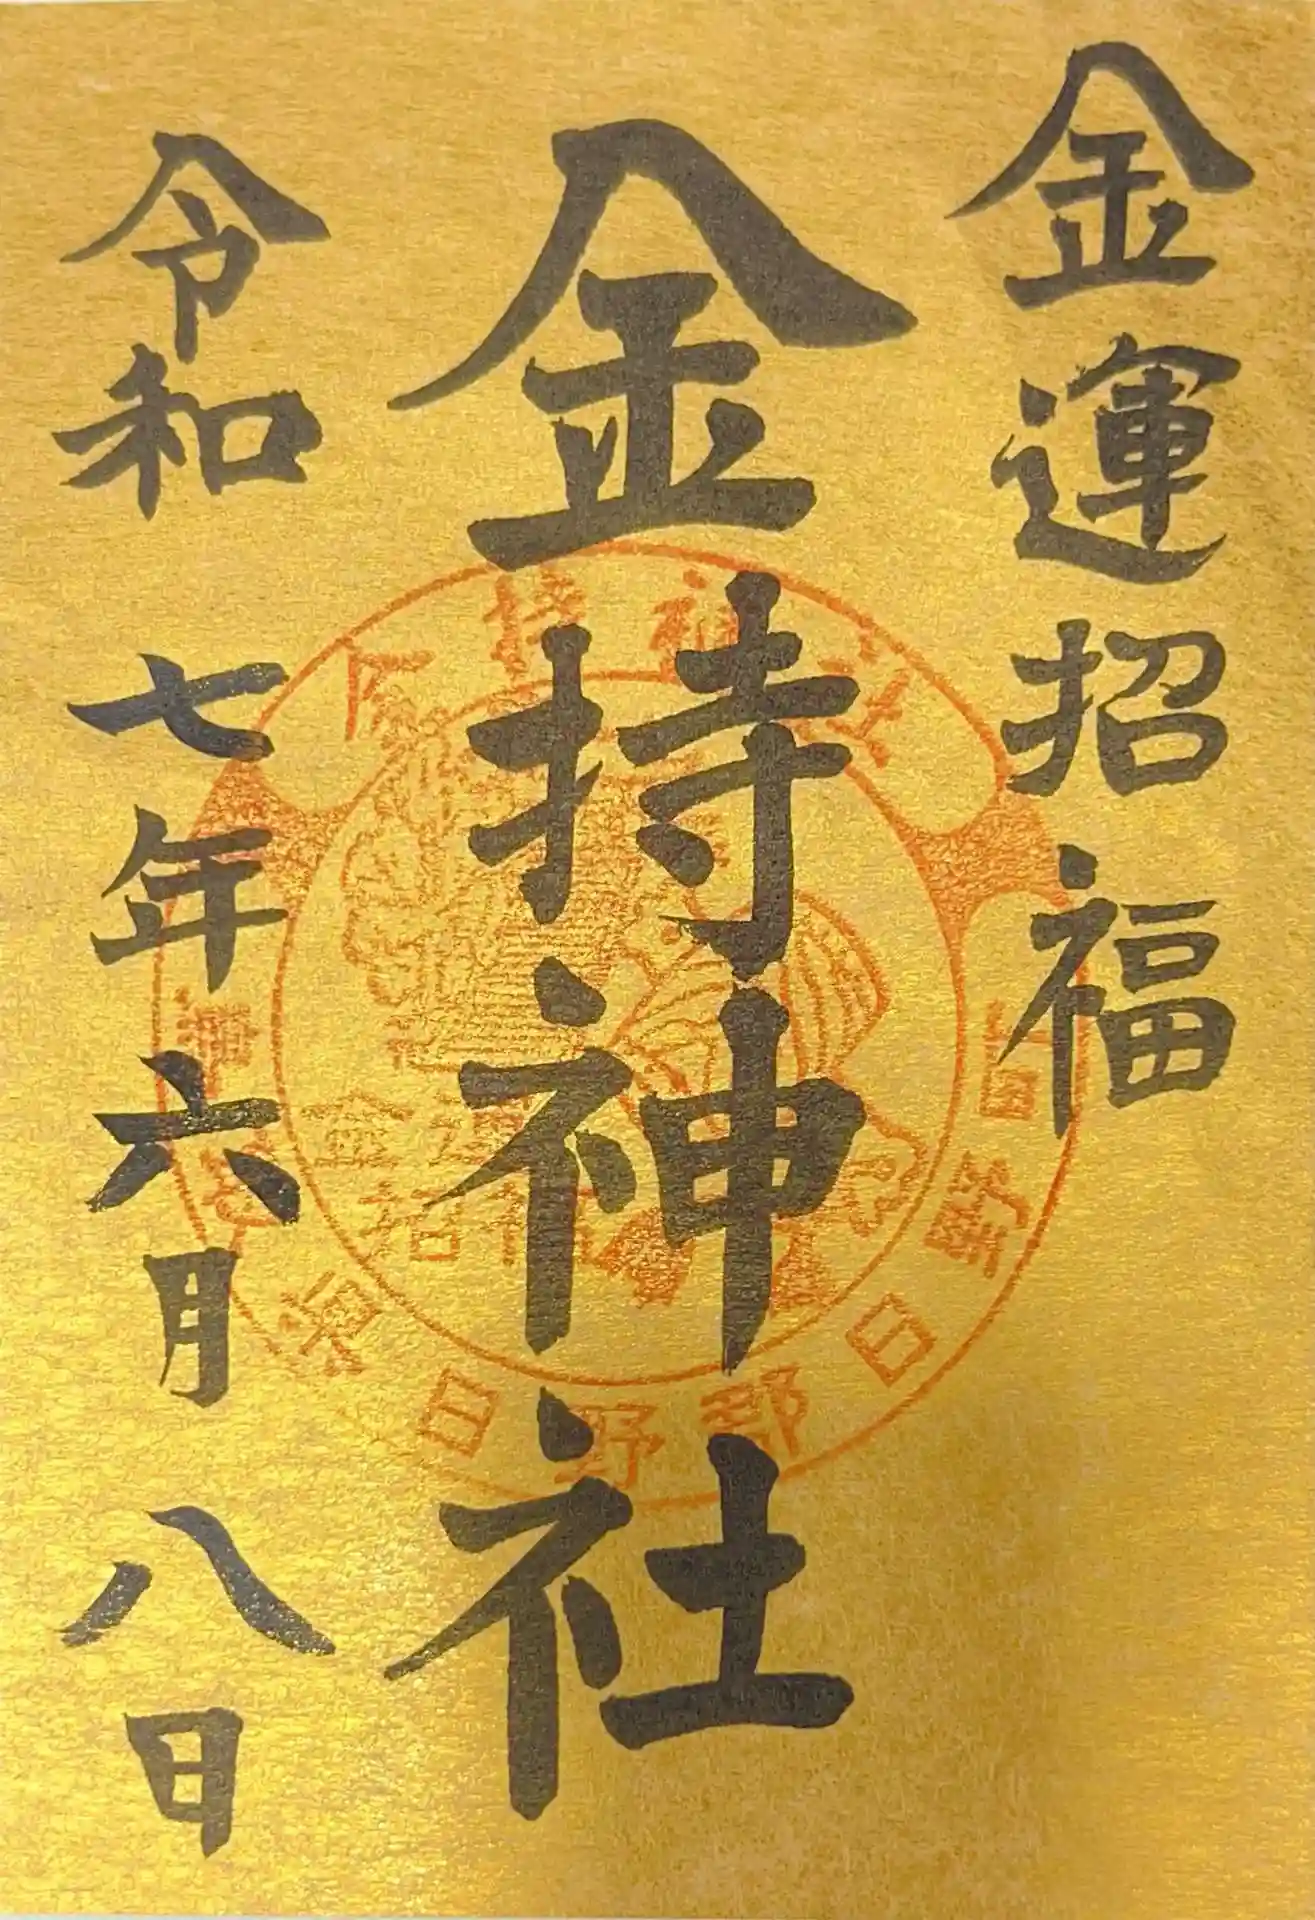 金運招福
金持神社
令和七年六月八日
金持神社
鳥取県日野郡日野町
金運
招福